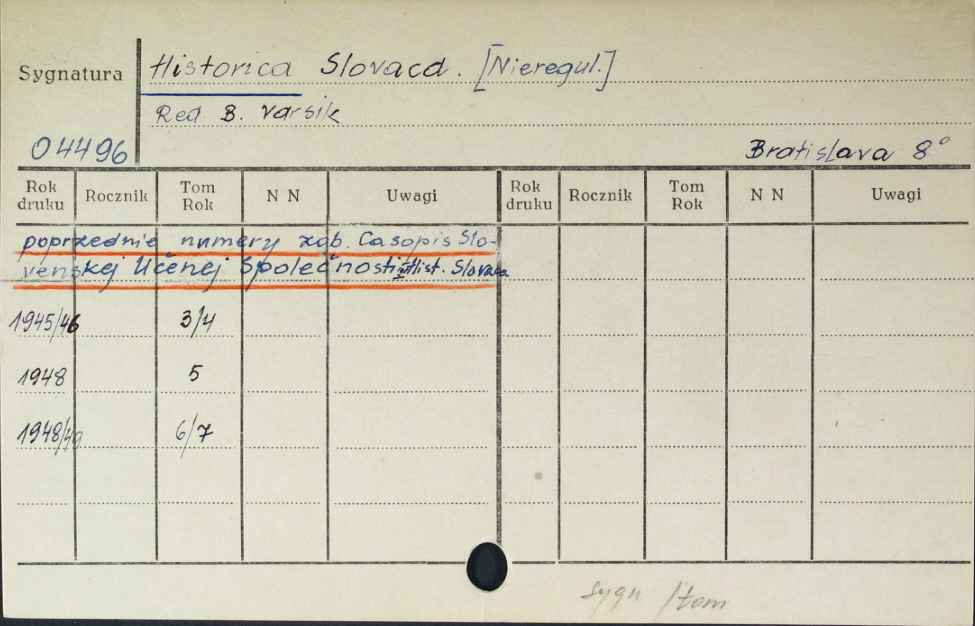 Sygnatura
Historica Slovaca. [Nieregul.]
Red B. Varsik
04496
Bratislava 8°
Rok druku Rocznik Tom Rok N N Uwagi Rok druku Rocznik Tom Rok N N Uwagi
poprzednie numery zob. Casopis Slo-
venskej Učenej Společnosti Hist. Slovaca
1945/46 3/4
1948 5
1948/49 6/7
sygn /tom